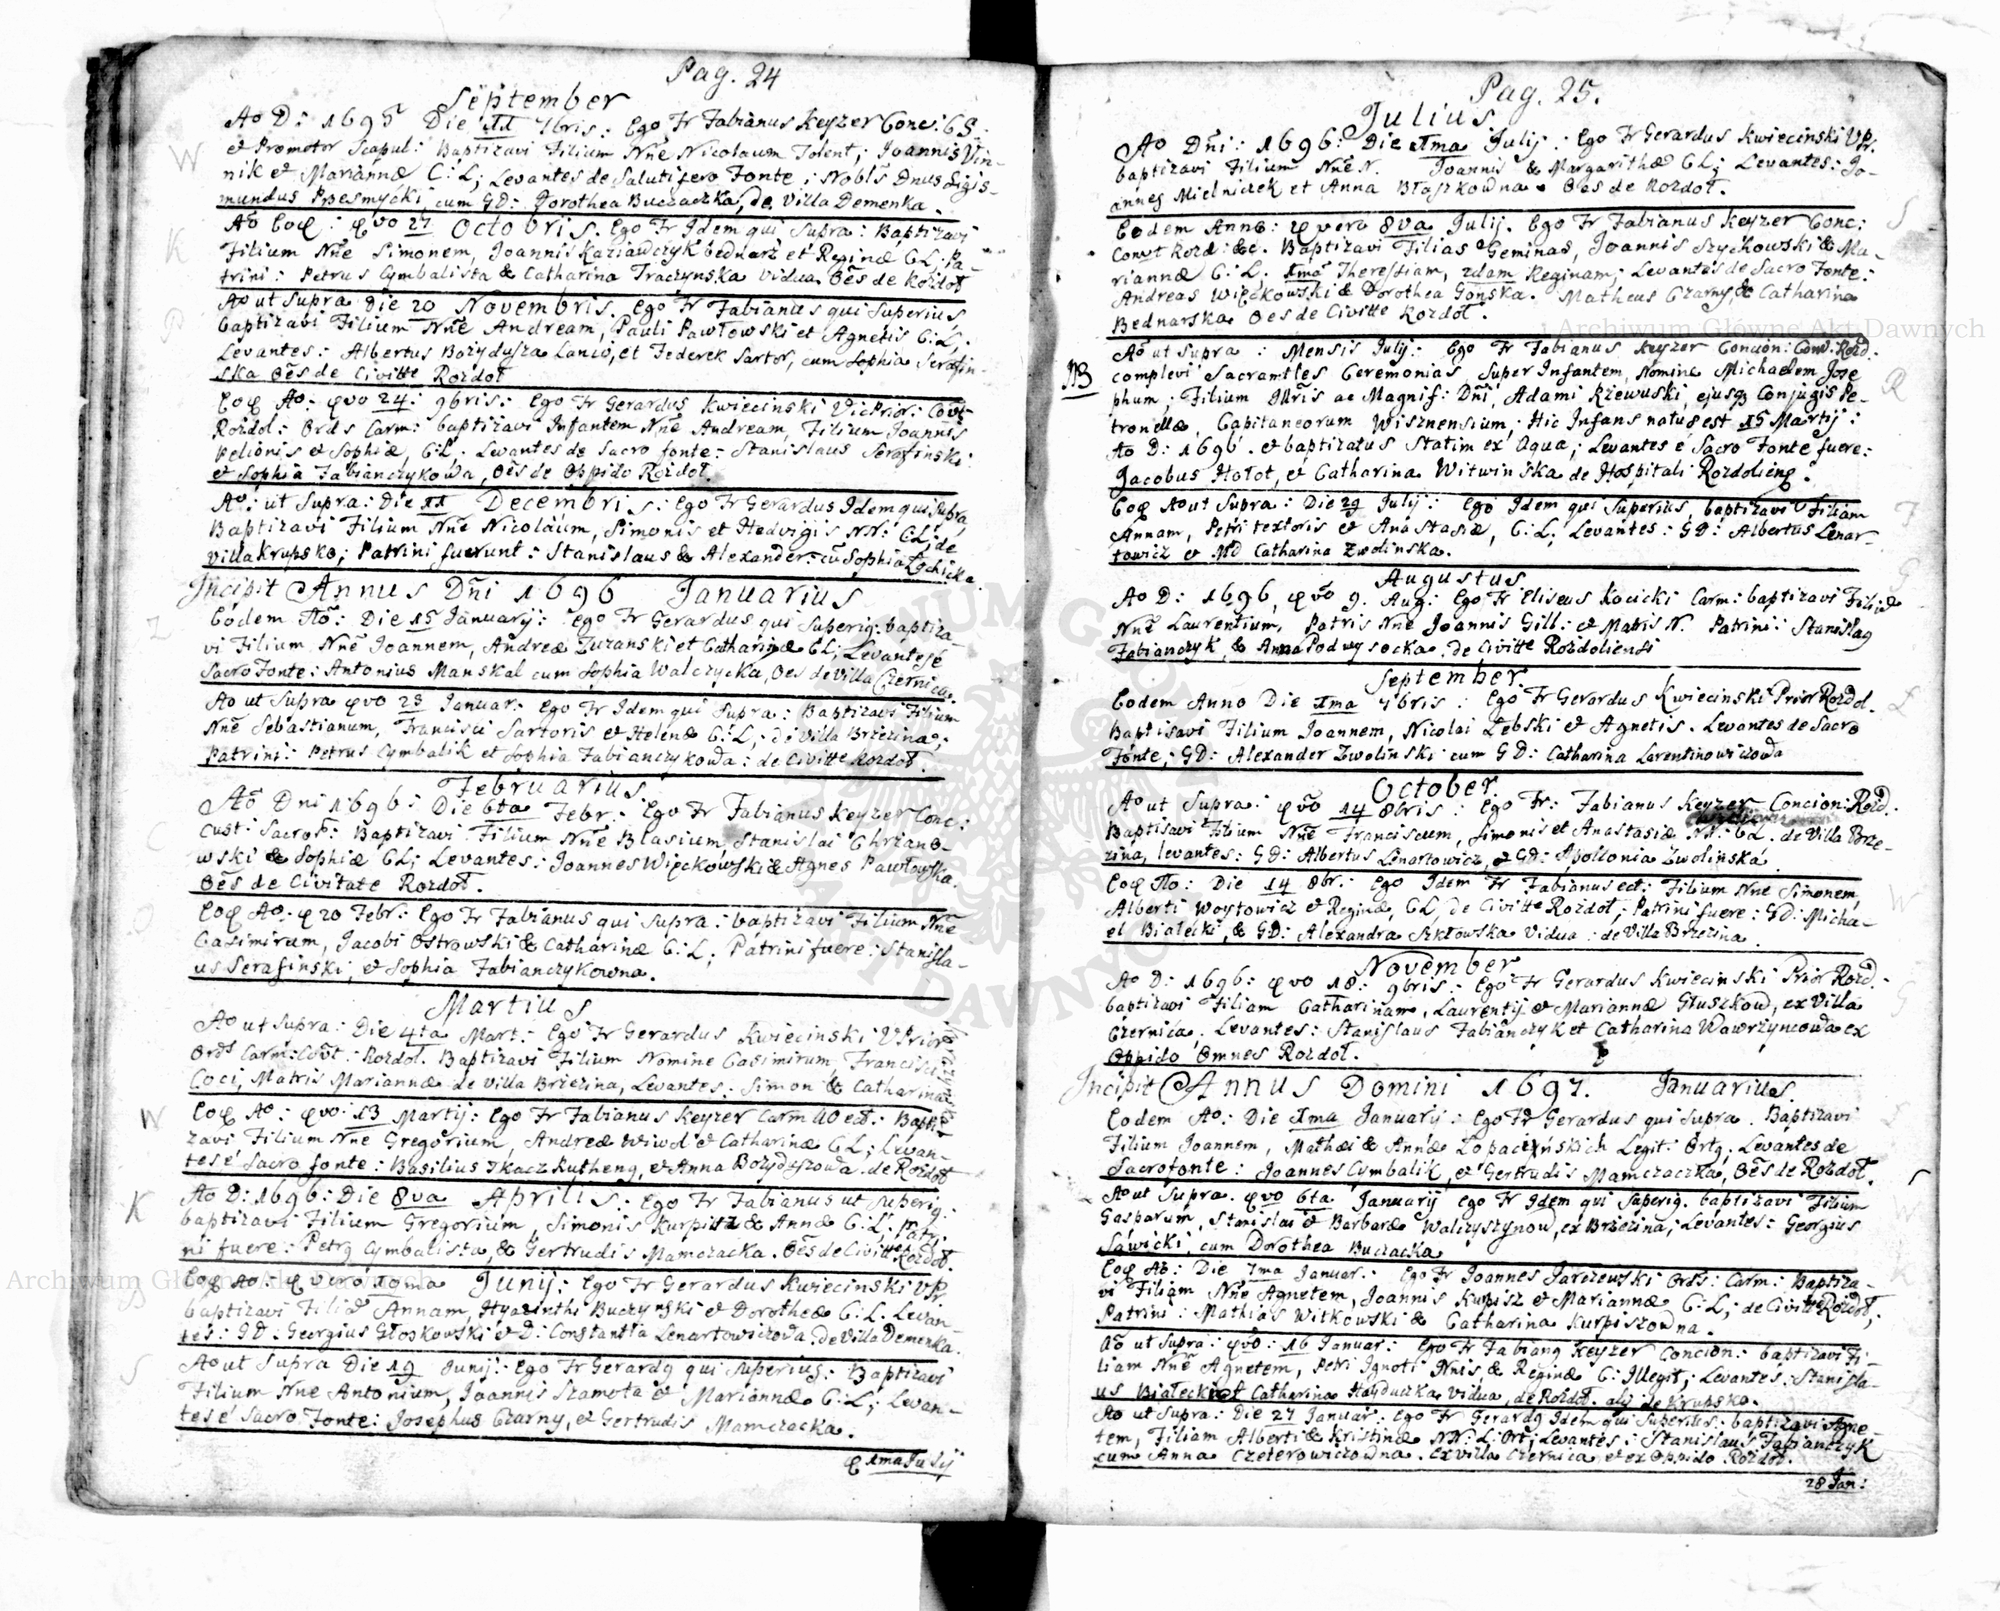 Pag. 24
September
Ao D: 1695 Die 11 7bris: Ego Fr Fabianus Keyzer Conc: CS:
et Promotor Scapul: Baptizavi Filium Nne Nicolaum Tolent; Joannis Vin-
nik et Mariannæ C: L; Levantes de Salutifero Fonte; Nobls Dnus Sigis-
mundus Przesmycki, cum GD: Dorothea Buczaczka, de Villa Demenka.
Ao Eoq: qvo 27 Octobris. Ego Fr Idem qui Supra: Baptizavi
Filium Nne Simonem, Joannis Kaziawczyk bednarz et Reginæ C L: Pa-
trini: Petrus Cymbalista & Catharina Traczynska Vidua Oes de Rozdoł
Ao ut Supra Die 20 Novembris. Ego Fr Fabianus qui Superius
baptizavi Filium Nne Andream, Pauli Pawłowski et Agnetis C: L.
Levantes: Albertus Bozydusza Lanio, et Federek Sartor, cum Sophia Serafin-
ska Oes de Civitte Rozdoł
Eoq Ao: qvo 24: 9bris: Ego Fr Gerardus Kwiecinski VicPrior: Covt-
Rozdol: Ords Carm: baptizavi Infantem Nne Andream, Filium Joannis
Pelionis et Sophiæ, C: L. Levantes de Sacro fonte: Stanislaus Serafinski
et Sophia Fabianczykowa, Oes de Oppido Rozdoł.
Ao: ut Supra: Die 11 Decembris: Ego Fr Gerardus Idem qui Supra,
Baptizavi Filium Nne Nicolaum, Simonis et Hedvigis NN: C L; de
Villa Krupsko; Patrini fuerunt: Stanislaus & Alexander: cu Sophia
Incipit Annus Dni 1696 Januarius
Eodem Ao: Die 15 Januarij: Ego Fr Gerardus qui Superig: baptiza-
vi Filium Nne Joannem, Andreæ Zuzanski et Catharinæ C L; Levantes é
Sacro Fonte: Antonius Manskal cum Sophia Walczycka, Oes de Villa Czernica.
Ao ut Supra qvo 23 Januar: Ego Fr Idem qui Supra: Baptizavi Filium
Nne Sebastianum, Francisci Sartoris et Helenæ C: L; de Villa Brzezina;
Patrini: Petrus Cymbalik et Sophia Fabianczykowa: de Civitte Rozdoł.
Februarius
Ao Dni 1696: Die 6ta Febr: Ego Fr Fabianus Keyzer Conc:
Cust: Sacros: Baptizavi Filium Nne Blasium, Stanislai Chrzano-
wski & Sophiæ C L; Levantes: Joannes Więckowski & Agnes Pawłowska.
Oes de Civitate Rozdoł.
Eoq Ao: q 20 Febr: Ego Fr Fabianus qui Supra: baptizavi Filium Nne
Casimirum, Jacobi Ostrowski & Catharinæ C: L; Patrini fuere: Stanisla-
us Serafinski, et Sophia Fabianczykowna.
Martius
Ao ut Supra: Die 4ta Mart: Ego Fr Gerardus Kwiecinski VPrior
Ords Carm: Covt: Rozdoł. Baptizavi Filium Nomine Casimirum, Francisci
Coci, Matris Mariannæ de Villa Brzezina, Levantes: Simon & Catharina
Eoq Ao: qvo 13 Martij: Ego Fr Fabianus Keyzer Carm AO ect: Bapti-
zavi Filium Nne Gregorium, Andreæ Wiwd et Catharinæ C L; Levan-
tes é Sacro fonte: Basilius Tkacz Rutheng, et Anna Bozydyszowa. de Rozdoł
Ao D: 1696: Die 8va Aprilis: Ego Fr Fabianus ut Superig:
baptizavi Filium Gregorium, Simonis Kurpisz & Annæ C: L; Patri-
ni fuere: Petrg Cymbalista, & Gertrudis Mamczacka. Oes de Civitte Rozdoł.
Eoq Ao: q vero 10ma Junij: Ego Fr Gerardus Kwiecinski VPr
baptizavi Filiã Annam, Hyacinthi Buczynski et Dorotheæ C: L. Levan-
tes: GD: Georgius Głoskowski et D: Constantia Lenartowiczowa de Villa Demenka.
Ao ut Supra Die 19 Junij: Ego Fr Gerardg qui Superius: Baptizavi
Filium Nne Antonium, Joannis Szamota et Mariannæ C: L; Levan-
tes é Sacro Fonte: Josephus Czarny, et Gertrudis Mamczacka.
q 1ma Julij
Pag. 25.
Julius
Ao Dni: 1696: Die 1ma Julij: Ego Fr Gerardus Kwiecinski VPr.
baptizavi Filium Nne N. Joannis & Margarithæ C L; Levantes: Jo-
annes Mielniczek et Anna Błaszkowna. Oes de Rozdoł.
Eodem Anno: q vero 8va Julij. Ego Fr Fabianus Keyzer Conc:
Convt Rozd: &c. Baptizavi Filias Geminas, Joannis Szyckowski & Ma-
riannæ C: L. 1ma Theresiam, 2dam Reginam; Levantes de Sacro Fonte:
Andreas Więckowski & Dorothea Gonska. Matheus Czarny, & Catharina
Bednarska Oes de Civitte Rozdoł.
NB
Ao ut Supra: Mensis Julij: Ego Fr Fabianus Keyzer Concion: Conv. Rozd:
complevi Sacramtles Ceremonias Super Infantem, Nomine Michaelem Jose
phum; Filium Illris ac Magnif: Dni, Adami Rzewuski, ejusq Conjugis Pe-
tronellæ, Capitaneorum Wisznensium; Hic Infans natus est 15 Martij:
Ao D: 1696. et baptizatus Statim ex Aqua; Levantes é Sacro Fonte fuere:
Jacobus Hołot, et Catharina Witwinska de Hospitali Rozdolieng.
Eoq Ao ut Supra: Die 29 Julij: Ego Idem qui Superius, baptizavi Filiam
Annam, Petri textoris & Anastasiæ, C: L; Levantes: GD: Albertus Lenar-
towicz et MD Catharina Zwolinska.
Augustus
Ao D: 1696, qvo 9. Aug: Ego Fr Eliseus Kocicki Carm: baptizavi Filiũ
Nne Laurentium, Patris Nne Joannis Gill: et Matris N. Patrini: Stanislag
Fabianczyk, & Anna Podwysocka. de Civitte Rozdoliensi
September.
Eodem Anno Die 1ma 7bris: Ego Fr Gerardus Kwiecinski Prior Rozdol.
Baptisavi Filium Joannem, Nicolai Łebski et Agnetis. Levantes de Sacro
Fonte; GD: Alexander Zwolinski cum GD: Catharina Larentinowiczowa
October.
Ao ut Supra: qvo 14 8bris: Ego Fr: Fabianus Keyzer Concion: Rozd.
Baptisavi Filium Nne Franciscum, Simonis et Anastasiæ NN: C L. de Villa Brze-
zina, levantes: GD: Albertus Lenartowicz, et GD: Apollonia Zwolinska
Eoq Ao: Die 14 8br: Ego Idem Fr Fabianus ect: Filium Nne Simonem,
Alberti Woytowicz et Reginæ, C L, de Civitte Rozdoł; Patrini fuere: GD: Micha-
el Białecki, & GD: Alexandra Szkłowska Vidua: de Villa Brzezina
November
Ao D: 1696: qvo 18: 9bris: Ego Fr Gerardus Kwiecinski Prior Rozd.
baptizavi Filiam Catharinam, Laurentij & Mariannæ Głuszkow, ex Villa
Czernica, Levantes: Stanislaus Fabianczyk et Catharina Wawrzyncowa ex
Oppido Omnes Rozdoł.
Incipit Annus Domini 1697. Januarius.
Eodem Ao: Die 1ma Januarij: Ego Fr Gerardus qui Supra. Baptizavi
Filium Joannem, Mathæi & Annæ Łopacinskich Legit: Ortg. Levantes de
Sacro fonte: Joannes Cymbalik, et Gertrudis Mamczaczka, Oes de Rozdoł.
Ao ut Supra. qvo 6ta Januarij Ego Fr Idem qui Superig. baptizavi Filium
Gasparum, Stanislai & Barbaræ Walczyszynow, ex Brzezina; Levantes: Georgius
Sawicki, cum Dorothea Buczacka
Eoq Ao: Die 7ma Januar: Ego Fr Joannes Jarczewski Ords: Carm: Baptiza-
vi Filiam Nne Agnetem, Joannis Kurpisz et Mariannæ C: L; de Civitte Rozdoł;
Patrini: Mathias Witkowski & Catharina Kurpiszowna.
Ao ut Supra: qvo: 16 Januar: Ego Fr Fabiang Keyzer Concion: baptizavi Fi-
liam Nne Agnetem, Petri Ignoti Nnis, & Reginæ C: Illegit; Levantes: Stanisla-
us Białecki et Catharina Hayduczka Vidua, de Rozdoł. alij de Krupsko.
Ao ut Supra: Die 27 Januar: Ego Fr Gerardg Idem qui Superius: baptizavi Agne-
tem, Filiam Alberti & Kristinæ NN: L: Ort; Levantes: Stanislaus Fabianczyk
cum Anna Czeterowiczowna. ex Villa Czernica, et ex Oppido Rozdoł.
28 Jan: